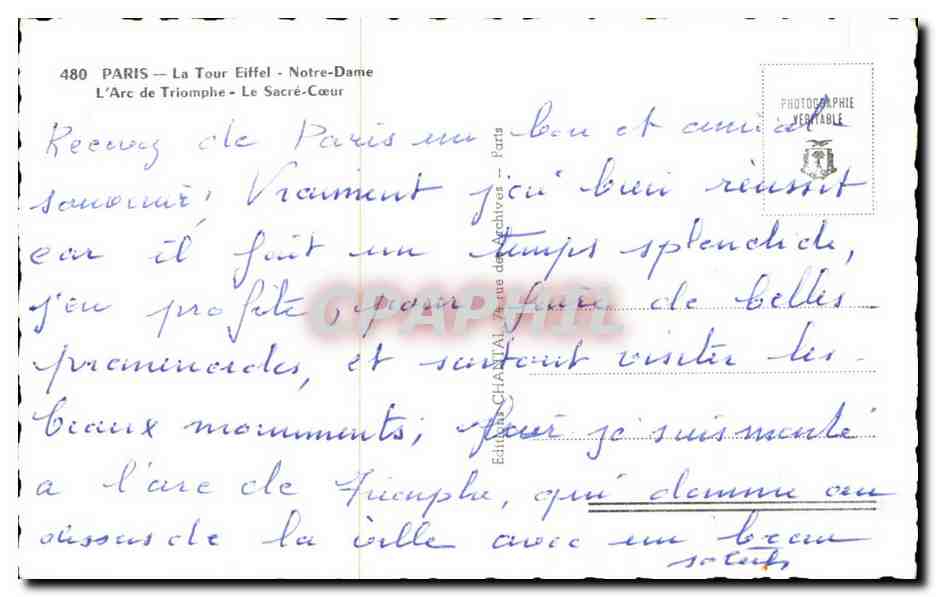 480 PARIS — La Tour Eiffel - Notre-Dame
L'Arc de Triomphe - Le Sacré-Cœur
PHOTOGRAPHIE
VÉRITABLE
Recevez de Paris un bon et amical
souvenir, Vraiment j'ai bien réussit
car il fait un temps splendide,
j'en profite, pour faire de belles
promenades, et surtout visiter les
beaux monuments; je suis monté
a l'arc de Triomphe, qui domine au
dessus de la ville avec un beau
soleil
Editions CHANTAL, 74, rue des Archives — Paris
CPAPHIL